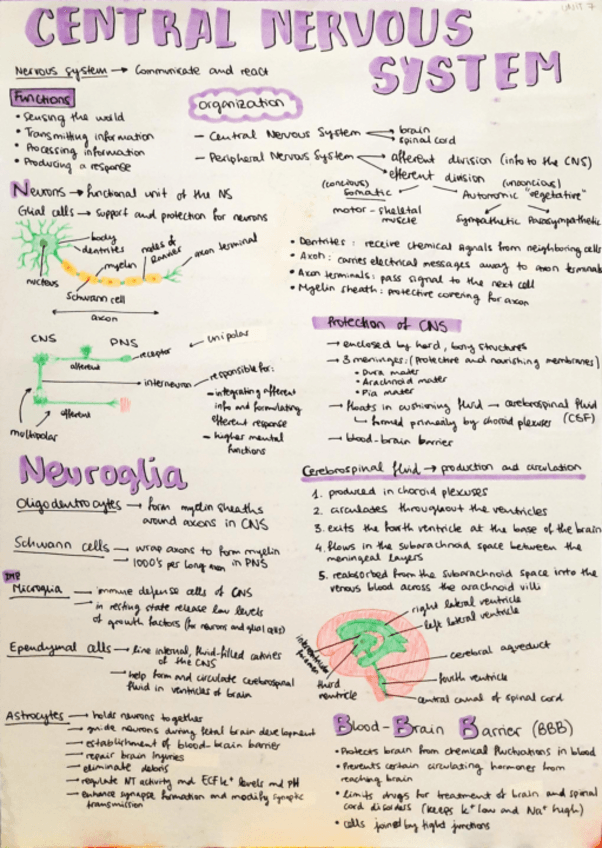 UNIT 7
CENTRAL NERVOUS
SYSTEM
Nervous system → Communicate and react
Functions
• Sensing the world
• Transmitting information
• Processing information
• Producing a response
Organization
- Central Nervous System
brain
spinal cord
- Peripheral Nervous System
afferent division (info to the CNS)
efferent division
(concious)
Somatic
(unconcious)
Autonomic "vegetative"
motor-skeletal
muscle
Sympathetic Parasympathetic
Neurons → functional unit of the NS
Glial cells → support and protection for neurons
body
dentrites
nodes of
Ranvier
axon terminal
myelin
nucleus
Schwann cell
axon
• Dentrites: receive chemical signals from neighboring cells
• Axon: carries electrical messages away to axon terminals
• Axon terminals: pass signal to the next cell
• Myelin sheath: protective covering for axon
CNS
PNS
unipolar
receptor
afferent
interneuron
efferent
multipolar
responsible for:
- integrating afferent
info and formulating
efferent response
- higher mental
functions
Protection of CNS
→ enclosed by hard, bony structures
→ 3 meninges: (protective and nourishing membranes)
• Dura mater
• Arachnoid mater
• Pia mater
→ floats in cushioning fluid → cerebrospinal fluid
(CSF)
formed primarily by choroid plexuses
→ blood-brain barrier
Neuroglia
Oligodentrocytes → form myelin sheaths
around axons in CNS
Schwann cells → wrap axons to form myelin
→ 1000's per long axon in PNS
Microglia → immune defense cells of CNS
→ in resting state release low levels
of growth factors (for neurons and glial cells)
Ependymal cells → line internal, fluid-filled cavities
of the CNS
→ help form and circulate cerebrospinal
fluid in ventricles of brain
Astrocytes → holds neurons together
→ guide neurons during fetal brain development
→ establishment of blood-brain barrier
→ repair brain injuries
→ eliminate debris
→ regulate NT activity and ECF K⁺ levels and pH
→ enhance synapse formation and modify synaptic
transmission
Cerebrospinal fluid → production and circulation
1. produced in choroid plexuses
2. circulates throughout the ventricles
3. exits the fourth ventricle at the base of the brain
4. flows in the subarachnoid space between the
meningeal layers
5. reabsorbed from the subarachnoid space into the
venous blood across the arachnoid villi
right lateral ventricle
left lateral ventricle
cerebral aqueduct
third
ventricle
fourth ventricle
central canal of spinal cord
Blood-Brain Barrier (BBB)
• Protects brain from chemical fluctuations in blood
• Prevents certain circulating hormones from
reaching brain
• limits drugs for treatment of brain and spinal
cord disorders (keeps K⁺ low and Na⁺ high)
• cells joined by tight junctions